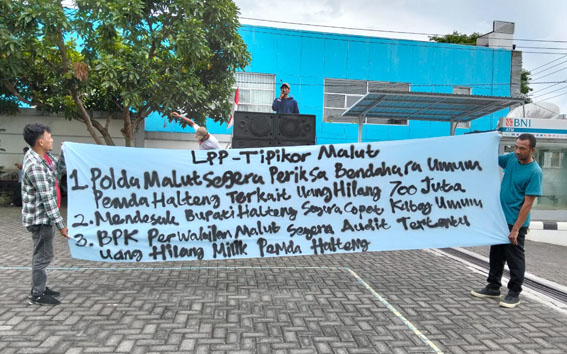 LPP-TIPIKOR MALUT
1. POLDA MALUT SEGERA PERIKSA BENDAHARA UMUM
PEMDA HALTENG TERKAIT UANG HILANG 700 JUTA
2. MENDESAK BUPATI HALTENG SEGERA COPOT KABAG UMUM
3. BPK PERWAKILAN MALUT SEGERA AUDIT TERTENTU
UANG HILANG MILIK PEMDA HALTENG
BNI